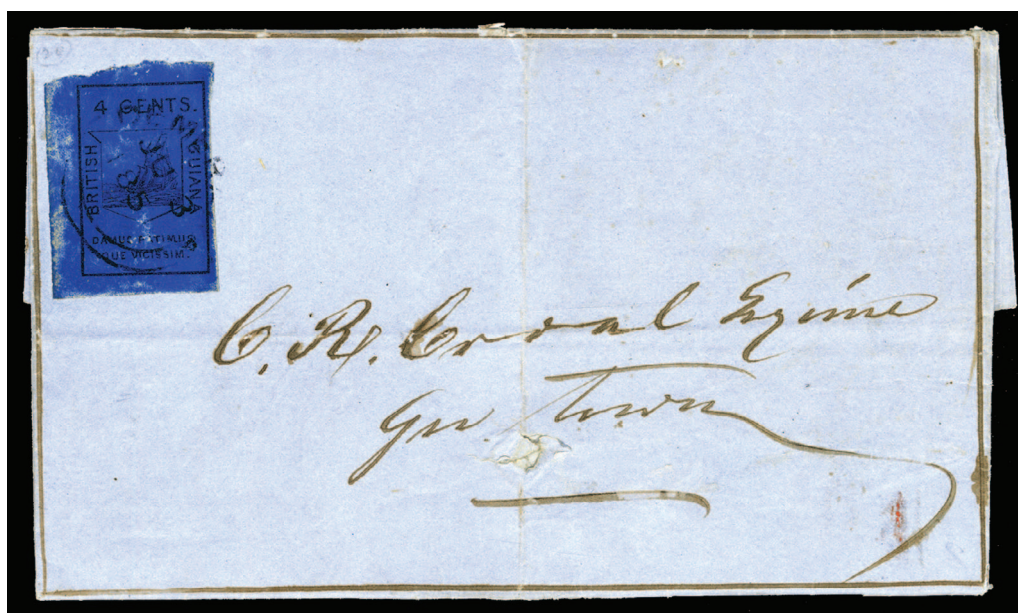 4 CENTS.
BRITISH
GUIANA
DAMUS PETIMUS
QUE VICISSIM.
C. R. Croal Esquire
Geo Town